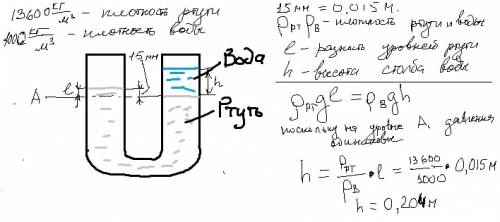 13600 кг/м³ - плотность ртути
1000 кг/м³ - плотность воды
15 мм
Вода
ℓ
h
A
Ртуть
15 мм = 0,015 м.
ρрт, ρв - плотность ртути и воды
ℓ - разность уровней ртути
h - высота столба воды
ρртgℓ = ρвgh
поскольку на уровне A, давления
одинаковы
h = ρрт/ρв · ℓ = 13600/1000 · 0,015 м
h = 0,204 м